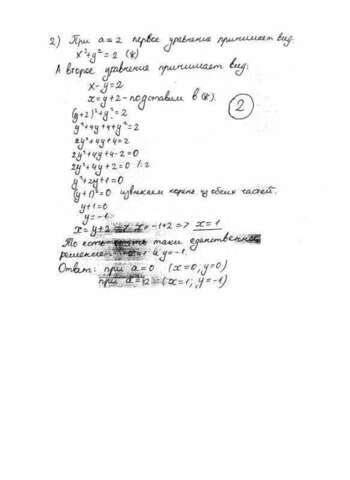 2) При a=2 первое уравнение принимает вид:
x²+y²=2 (*)
А второе уравнение принимает вид:
x-y=2
x=y+2 - подставим в (*).
(y+2)²+y²=2
y²+4y+4+y²=2
2y²+4y+4=2
2y²+4y+4-2=0
2y²+4y+2=0 |:2
y²+2y+1=0
(y+1)²=0 извлекаем корень из обоих частей.
y+1=0
y=-1
x=y+2 => x=-1+2 => x=1
То есть опять таки единственное
решение x=1 и y=-1.
Ответ: при a=0 (x=0, y=0)
при a=2 (x=1; y=-1)
2